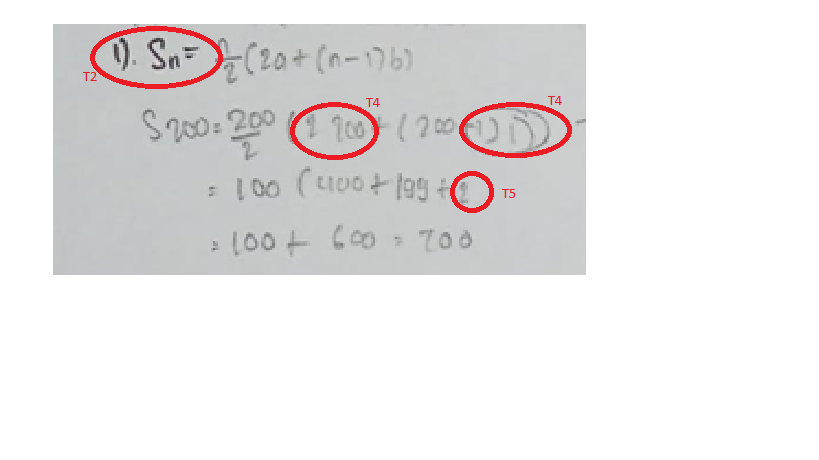 1). Sn = n/2 (2a + (n-1)b)
T2
T4
T4
S200 = 200/2 (2 200 + (200-1) 1))
= 100 (400 + 199 + 2
T5
= 100 + 600 = 700